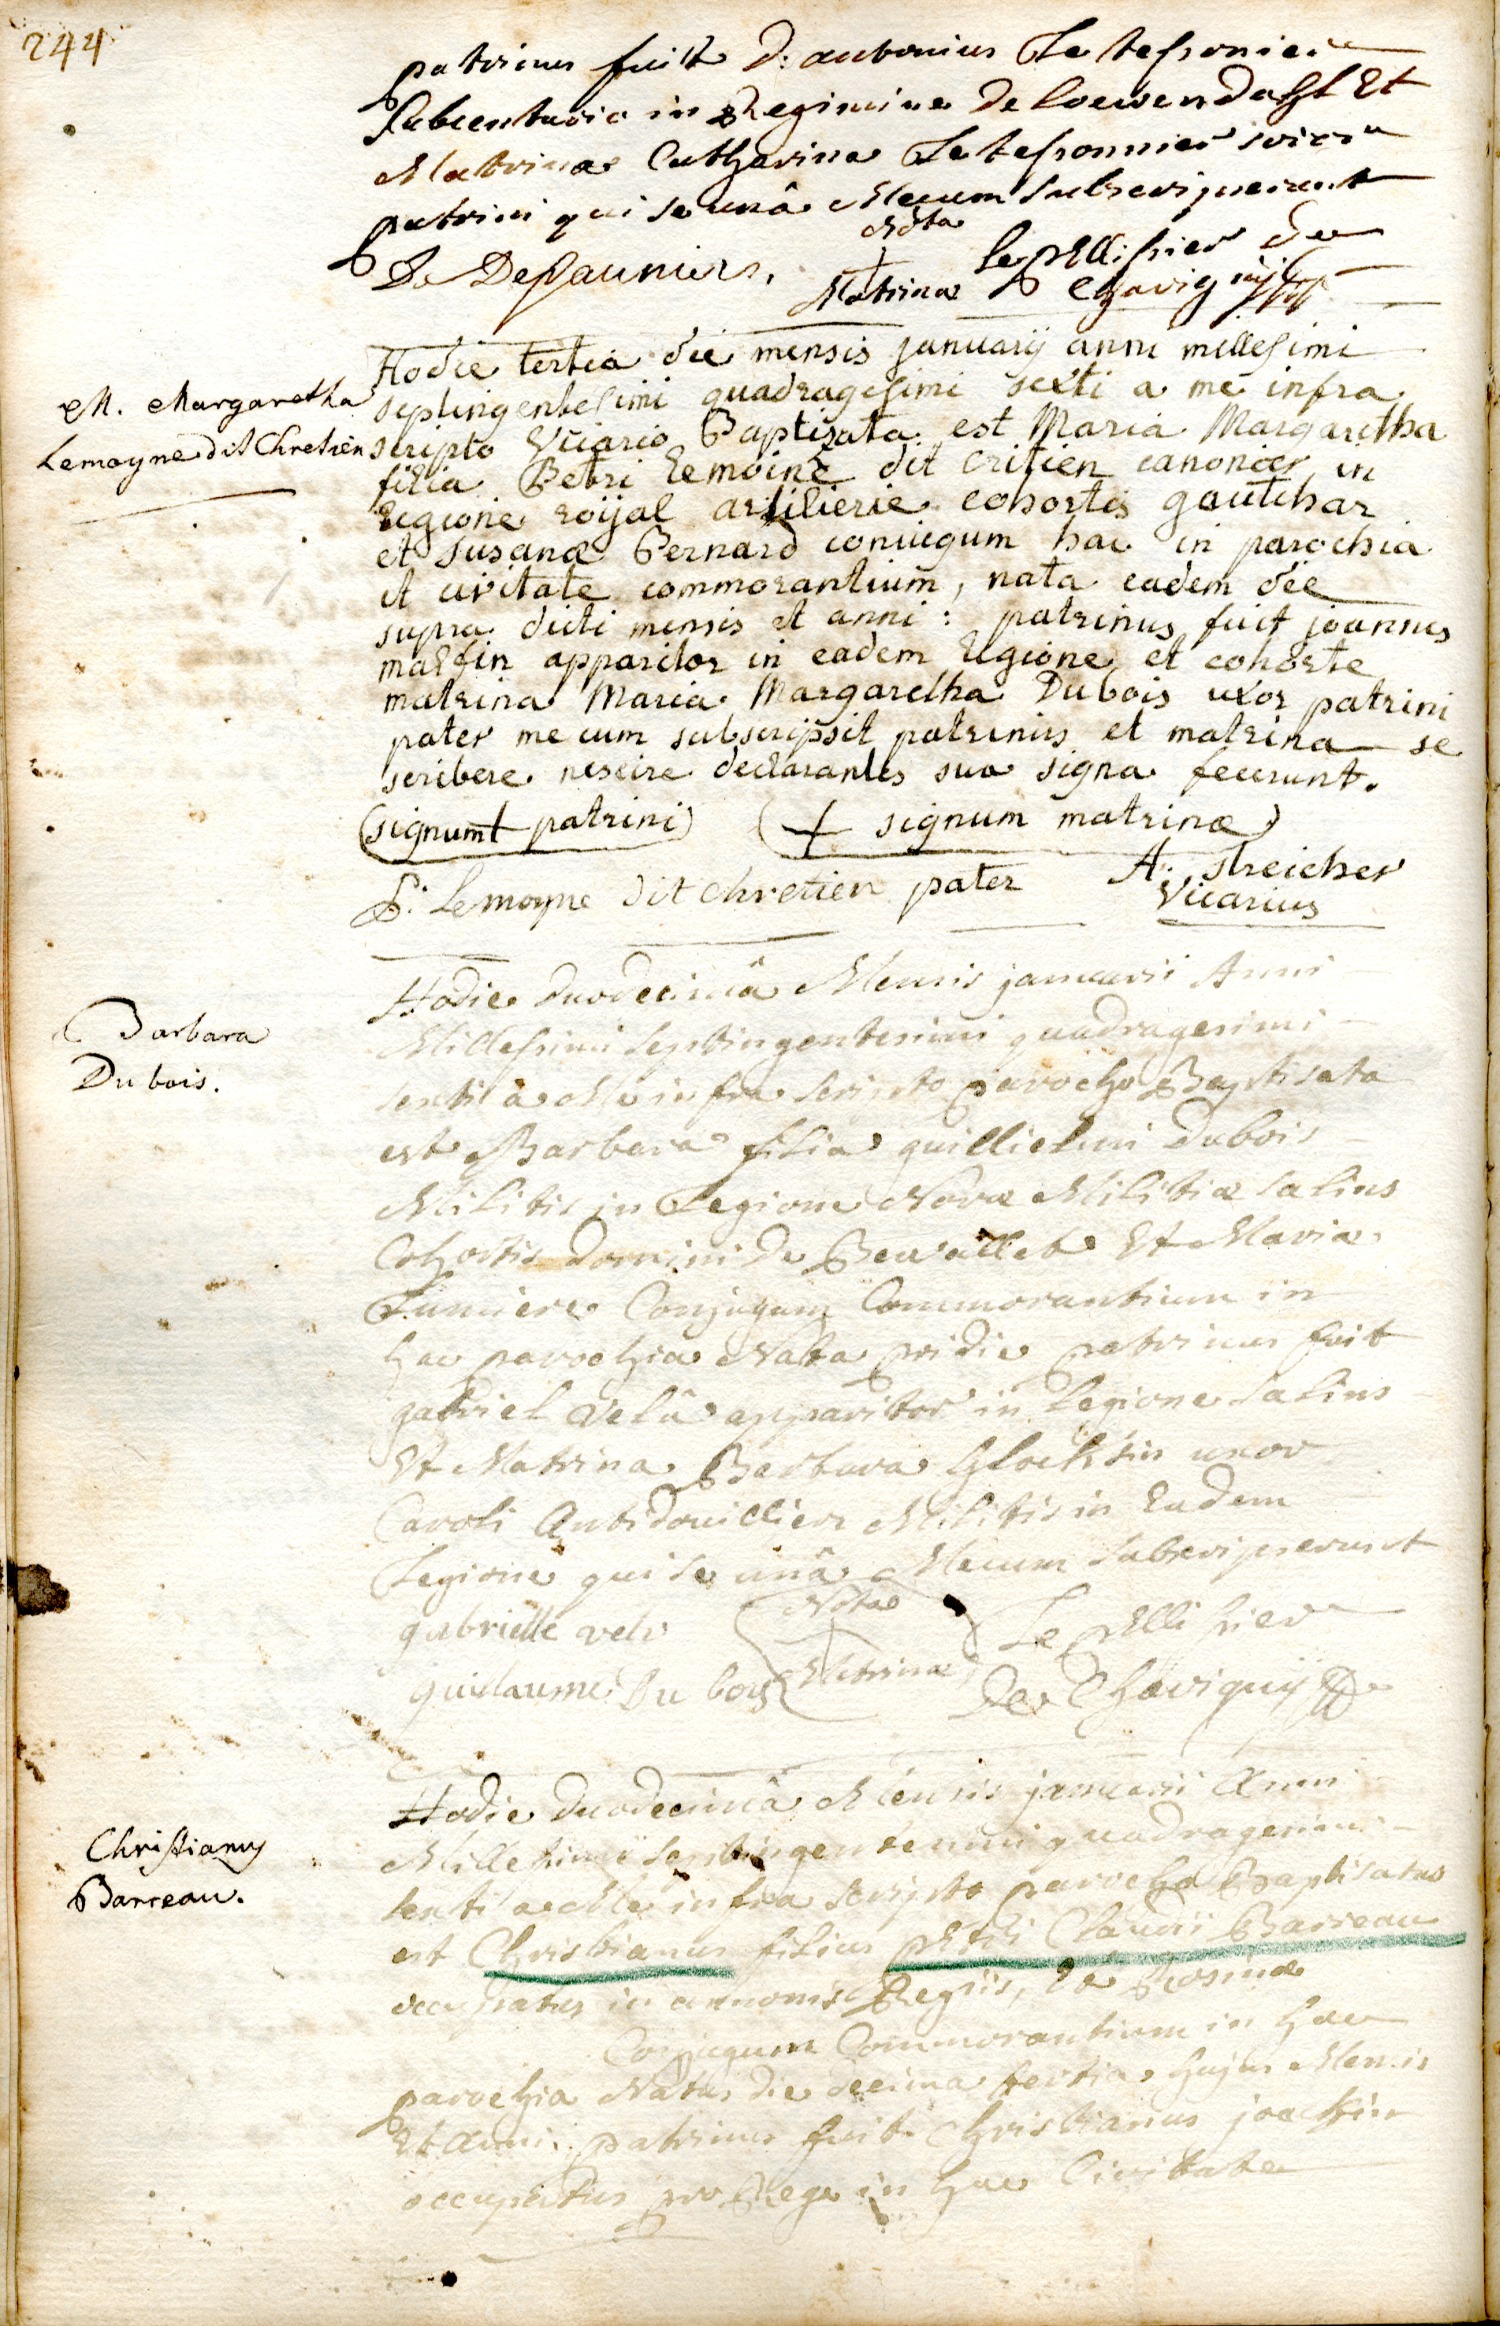 244
patrinus fuitt D: antonius Le tessonier
subcenturio in Regimine De Loewendahl Et
Matrina Catharina Le tessonnier soror
patrini qui se unâ Mecum subscripserunt
Nota
De Depaumiers. Matrinæ Le pellissier de
Chavignÿ
M. Margaretha
Lemoyne dit Chretien
Hodie tertia die mensis januarÿ anni millesimi
septingentesimi quadragesimi sexti a me infra
scripto Vicario Baptizata est Maria Margaretha
filia Petri Lemoine dit critien canonier in
Legione roÿal artilierie cohortis gautchar
et susanæ Bernard coniugum hac in parochia
et civitate commorantium, nata eadem die
supra dicti mensis et anni: patrinus fuit joannes
malfin apparitor in eadem Legione et cohorte
matrina Maria Margaretha Dubois uxor patrini
pater me cum subscripsit patrinus et matrina se
scribere nescire declarantes sua signa fecerunt.
(signum + patrini) (+ signum matrinæ)
P: Lemoyne dit chretien pater A. streicher
Vicarius
Barbara
Dubois.
Hodie duodecimâ Mensis januarii Anni
Millesimi septingentesimi quadragesimi
sexti a Me infra scripto parocho Baptisata
est Barbara filia guillielmi Dubois
Militis in Legione Novæ Militiæ Salins
Cohortis domini De Et Maria
Lumiere Conjugum Commorantium in
hac parochia Nata pridie patrinus fuit
gabriel Velû apparitor in Legione Salins
Et Matrina Barbara uxor
Caroli Militis in Eadem
Legione qui se unâ Mecum subscripserunt
gabrielle velu Nota Le pellissier
guillaume Du bois Matrinæ De Chavignÿ
Christianus
Barreau.
Hodie duodecimâ Mensis januarii Anni
Millesimi septingentesimi quadragesimi
sexti a Me infra scripto parocho Baptisatus
est Christianus filius petri Claudii Barreau
occupatus in annonis Regiis, Et Rosinæ
Conjugum Commorantium in hac
parochia Natus die decima tertia hujus Mensis
Et anni. patrinus fuit Christianus
occupatus pro Rege in hac Civitate